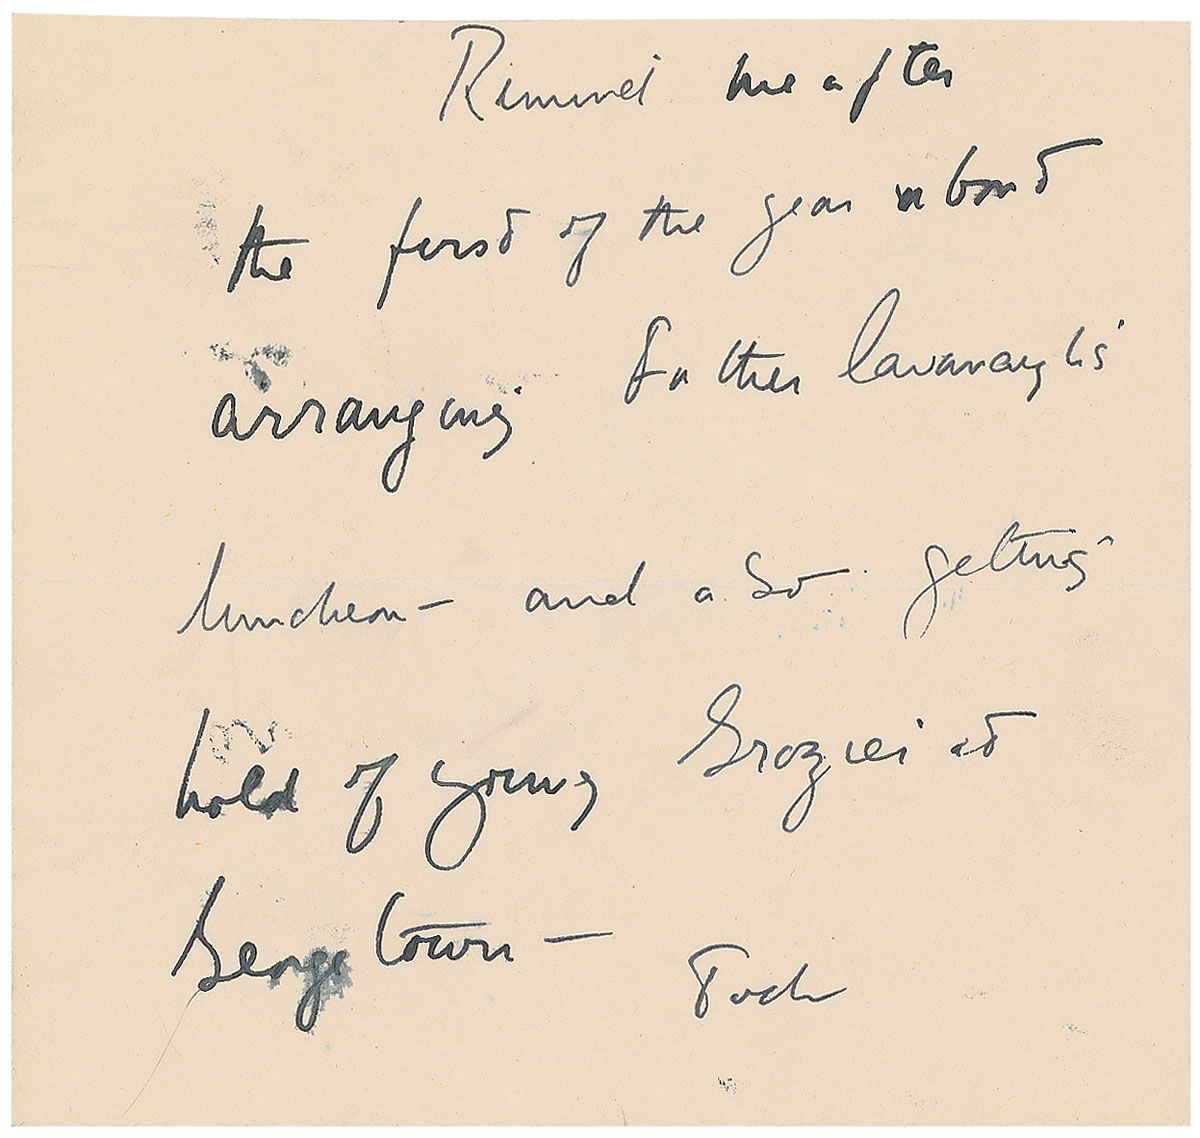 Remind me after
the first of the year about
arranging Father Cavanaugh's
luncheon – and also getting
hold of young Grozier at
Georgetown –